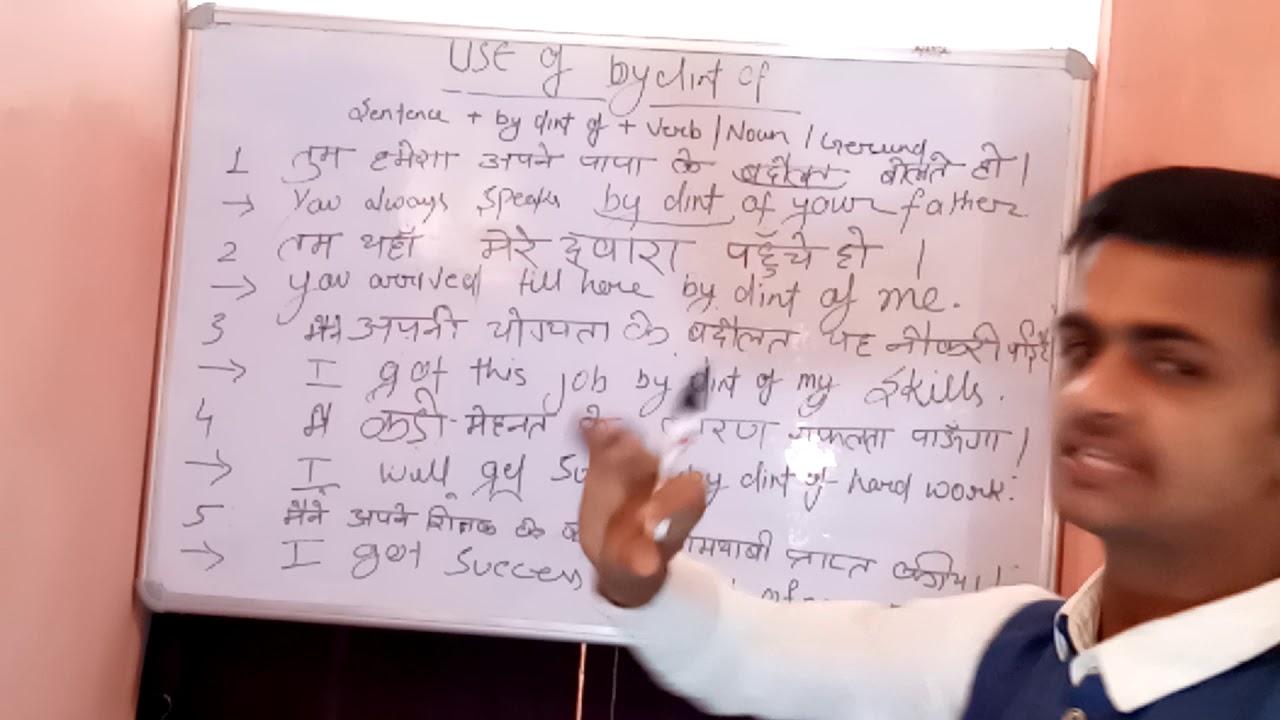 USE of by dint of
Sentence + by dint of + Verb / Noun / Gerund
1 तुम हमेशा अपने पापा के बदौलत बोलते हो।
→ You always speaks by dint of your father
2 तुम यहाँ मेरे द्वारा पहुँचे हो ।
→ you arrived till here by dint of me.
3 मैंने अपनी योग्यता के बदौलत यह नौकरी
→ I got this job by dint of my skills.
4 मैं कड़ी मेहनत के सफलता पाऊँगा।
→ I will get by dint of hard work.
5 मैंने अपने शिक्षक के प्राप्त
→ I got Success